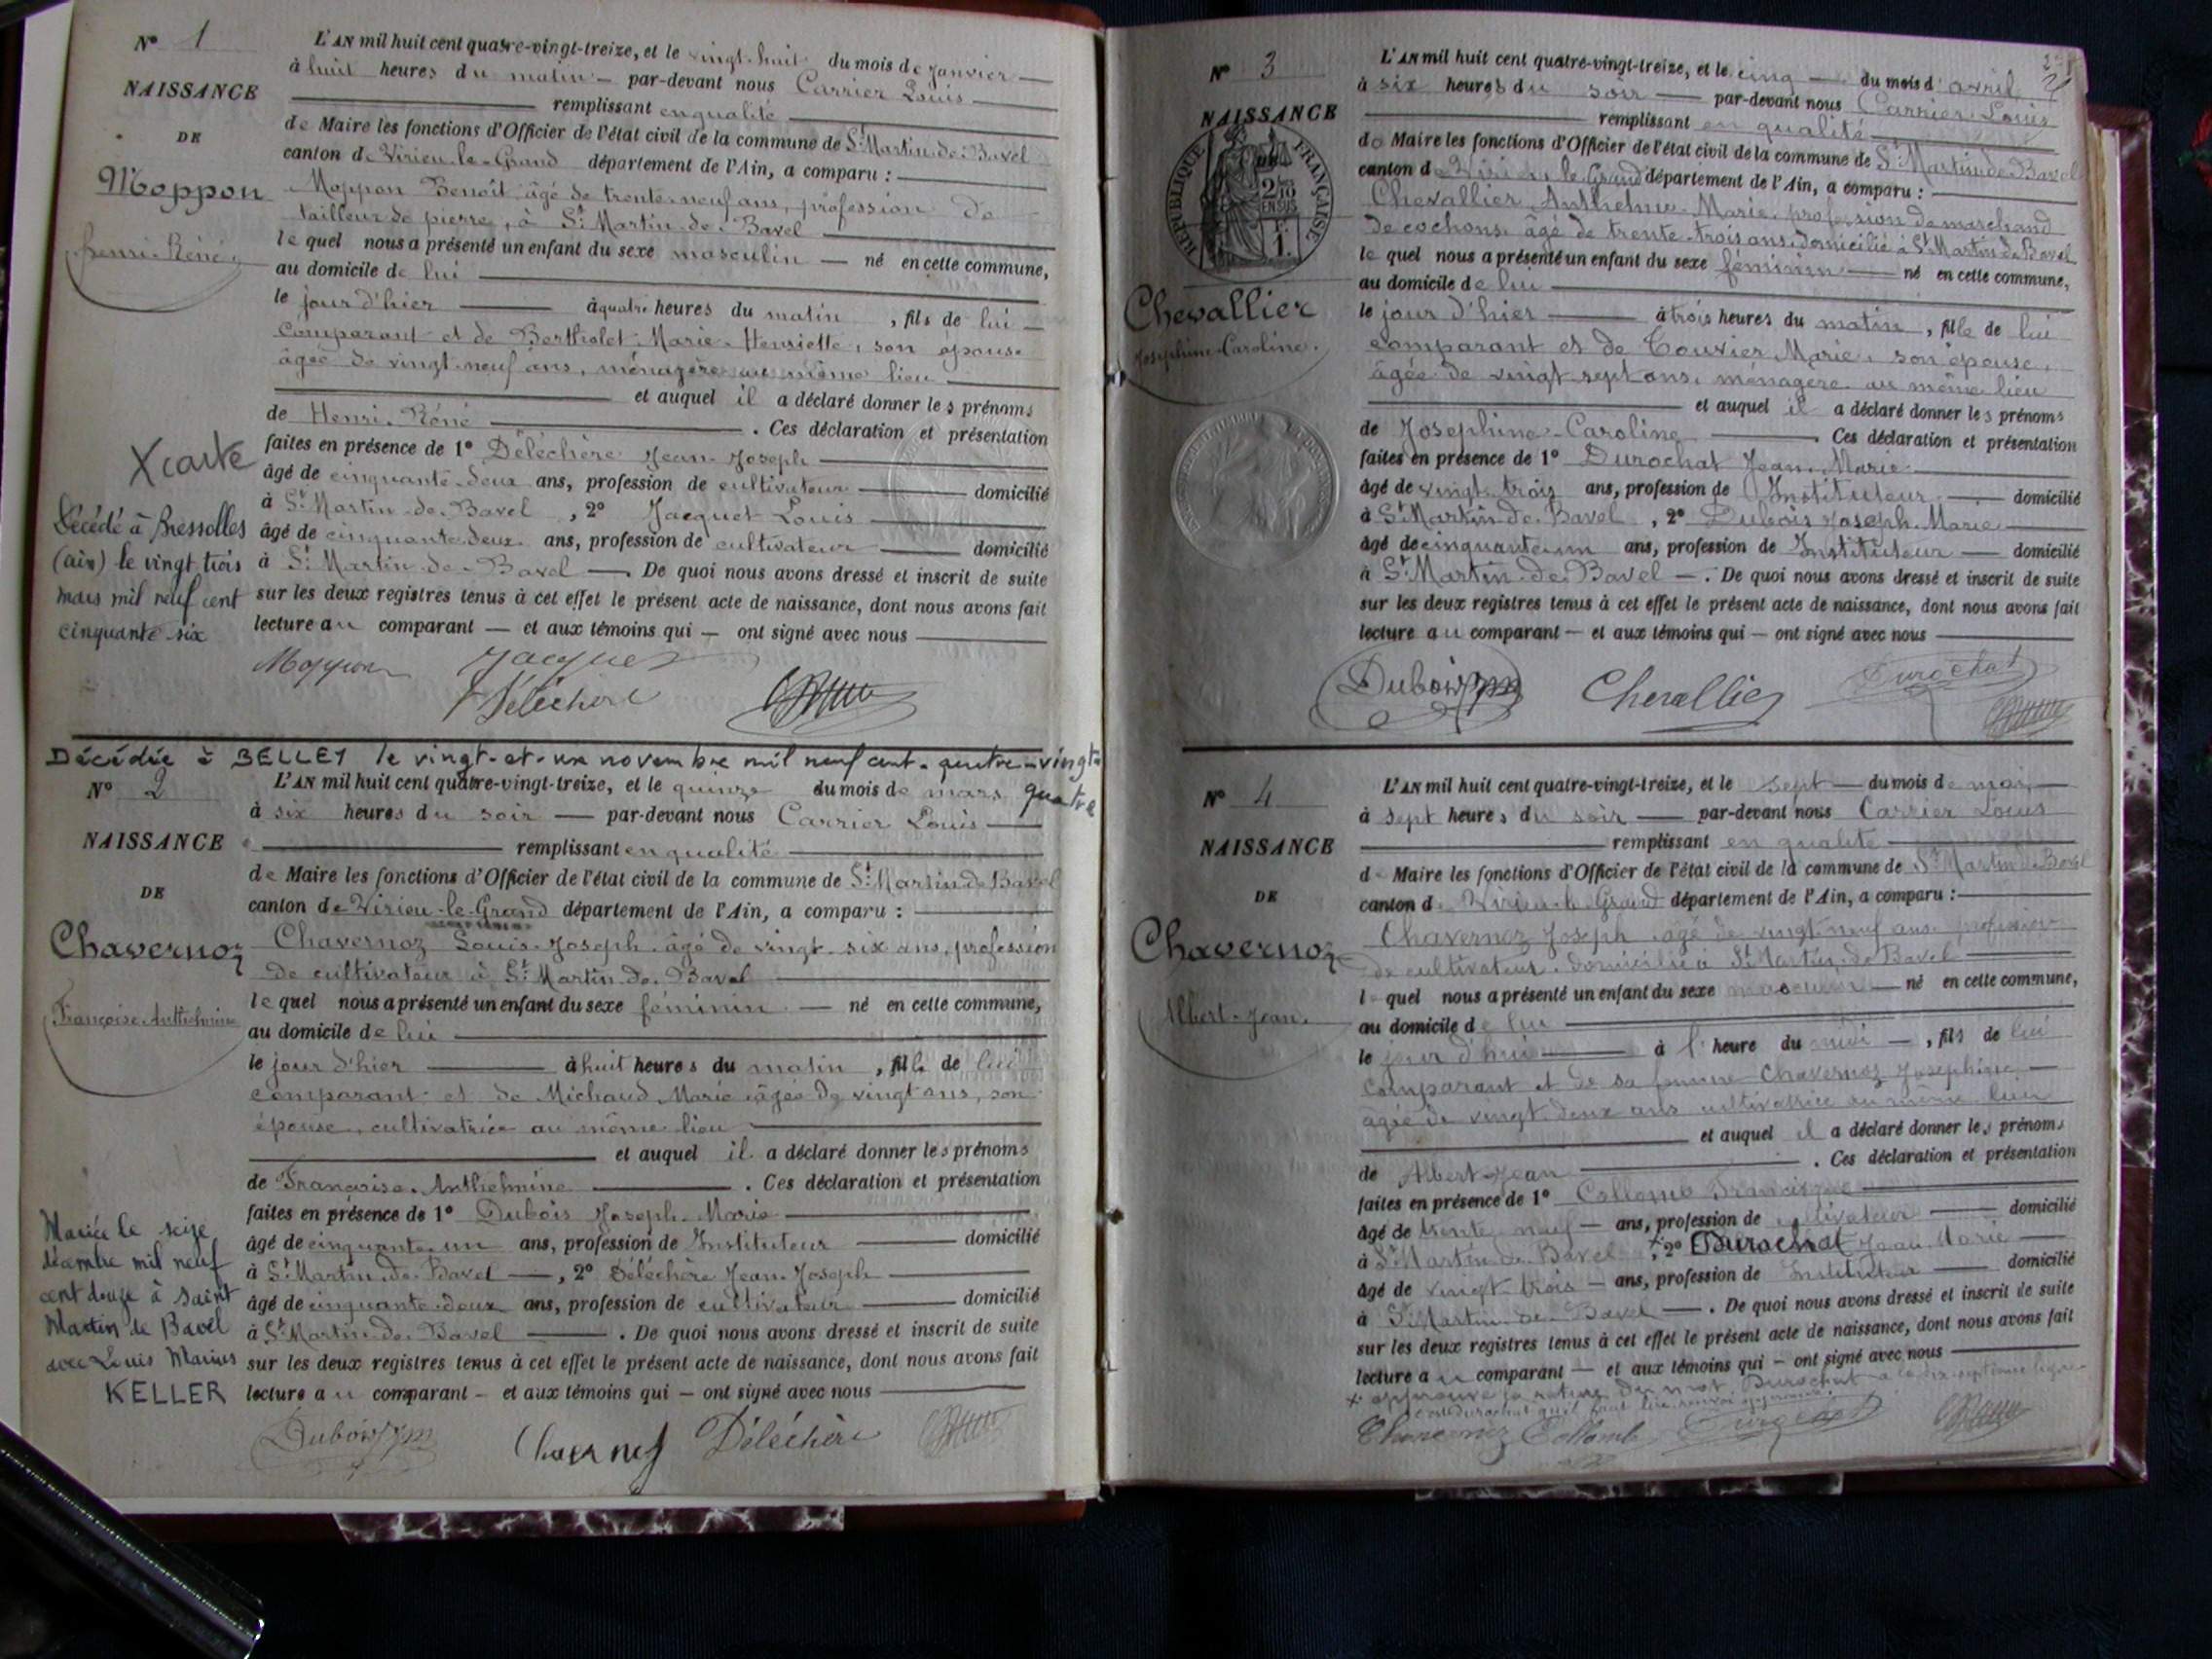 N° 1
L'AN mil huit cent quatre-vingt-treize, et le vingt-huit du mois de Janvier
à huit heures du matin par-devant nous Carrier Louis
NAISSANCE
remplissant en qualité
DE
de Maire les fonctions d'Officier de l'état civil de la commune de St Martin-de-Bavel
canton de Virieu-le-Grand département de l'Ain, a comparu :
Moppon
Moppon Benoît âgé de trente-neuf ans, profession de
tailleur de pierre, à St Martin-de-Bavel
Henri-Réné
lequel nous a présenté un enfant du sexe masculin né en cette commune,
au domicile de lui
le jour d'hier à quatre heures du matin, fils de lui
comparant et de Bertholet Marie-Henriette, son épouse
âgée de vingt-neuf ans, ménagère au même lieu
et auquel il a déclaré donner les prénoms
de Henri-Réné . Ces déclaration et présentation
X carte
faites en présence de 1° Déléchère Jean-Joseph
âgé de cinquante-deux ans, profession de cultivateur domicilié
à St Martin-de-Bavel, 2° Jacquet Louis
âgé de cinquante-deux ans, profession de cultivateur domicilié
à St Martin-de-Bavel . De quoi nous avons dressé et inscrit de suite
sur les deux registres tenus à cet effet le présent acte de naissance, dont nous avons fait
lecture au comparant et aux témoins qui ont signé avec nous
Décédé à Bressolles
(ain) le vingt trois
mars mil neuf cent
cinquante-six
Moppon Jacquet
Déléchère
Décédée à BELLEY le vingt-et-un novembre mil neuf cent-quatre-vingt-
quatre
N° 2
L'AN mil huit cent quatre-vingt-treize, et le quinze du mois de mars
à six heures du soir par-devant nous Carrier Louis
NAISSANCE
remplissant en qualité
DE
de Maire les fonctions d'Officier de l'état civil de la commune de St Martin-de-Bavel
canton de Virieu-le-Grand département de l'Ain, a comparu :
Chavernoz
Chavernoz Louis-Joseph âgé de vingt-six ans, profession
de cultivateur à St Martin-de-Bavel
Françoise-Anthelmine
lequel nous a présenté un enfant du sexe féminin né en cette commune,
au domicile de lui
le jour d'hier à huit heures du matin, fille de lui
comparant et de Michaud Marie âgée de vingt ans, son
épouse, cultivatrice au même lieu
et auquel il a déclaré donner les prénoms
de Françoise-Anthelmine . Ces déclaration et présentation
faites en présence de 1° Dubois Joseph-Marie
âgé de cinquante-un ans, profession de Instituteur domicilié
à St Martin-de-Bavel, 2° Déléchère Jean-Joseph
âgé de cinquante-deux ans, profession de cultivateur domicilié
à St Martin-de-Bavel . De quoi nous avons dressé et inscrit de suite
sur les deux registres tenus à cet effet le présent acte de naissance, dont nous avons fait
lecture au comparant et aux témoins qui ont signé avec nous
Mariée le seize
décembre mil neuf
cent douze à Saint
Martin de Bavel
avec Louis Marius
KELLER
Dubois Déléchère
2
N° 3
L'AN mil huit cent quatre-vingt-treize, et le cinq du mois d'avril
à six heures du soir par-devant nous Carrier Louis
NAISSANCE
remplissant en qualité
RÉPUBLIQUE FRANÇAISE
2/10 EN SUS
de Maire les fonctions d'Officier de l'état civil de la commune de St Martin-de-Bavel
canton de Virieu-le-Grand département de l'Ain, a comparu :
Chevallier Anthelme-Marie profession de marchand
de cochons, âgé de trente-trois ans domicilié à St Martin-de-Bavel
lequel nous a présenté un enfant du sexe féminin né en cette commune,
au domicile de lui
Chevallier
Joséphine-Caroline
le jour d'hier à trois heures du matin, fille de lui
comparant et de Touvier Marie, son épouse,
âgée de vingt-sept ans, ménagère au même lieu
et auquel il a déclaré donner les prénoms
de Joséphine-Caroline . Ces déclaration et présentation
faites en présence de 1° Durochat Jean-Marie
âgé de vingt-trois ans, profession de Instituteur domicilié
à St Martin-de-Bavel, 2° Dubois Joseph-Marie
âgé de cinquante-un ans, profession de Instituteur domicilié
à St Martin-de-Bavel . De quoi nous avons dressé et inscrit de suite
sur les deux registres tenus à cet effet le présent acte de naissance, dont nous avons fait
lecture au comparant et aux témoins qui ont signé avec nous
Dubois Chevallier Durochat
N° 4
L'AN mil huit cent quatre-vingt-treize, et le sept du mois de mai
à sept heures du soir par-devant nous Carrier Louis
NAISSANCE
remplissant en qualité
DE
de Maire les fonctions d'Officier de l'état civil de la commune de St Martin-de-Bavel
canton de Virieu-le-Grand département de l'Ain, a comparu :
Chavernoz
Chavernoz Joseph âgé de vingt-neuf ans profession
de cultivateur, domicilié à St Martin-de-Bavel
Albert-Jean
lequel nous a présenté un enfant du sexe masculin né en cette commune,
au domicile de lui
le jour d'hui à l'heure du midi, fils de lui
comparant et de sa femme Chavernoz Joséphine
âgée de vingt-deux ans cultivatrice au même lieu
et auquel il a déclaré donner les prénoms
de Albert-Jean . Ces déclaration et présentation
faites en présence de 1° Collomb Francisque
âgé de trente-neuf ans, profession de cultivateur domicilié
à St Martin-de-Bavel, 2° Durochat Jean Marie
âgé de vingt-trois ans, profession de Instituteur domicilié
à St Martin-de-Bavel . De quoi nous avons dressé et inscrit de suite
sur les deux registres tenus à cet effet le présent acte de naissance, dont nous avons fait
lecture au comparant et aux témoins qui ont signé avec nous
du mot Durochat à la dix-septième ligne
Chavernoz Collomb Durochat